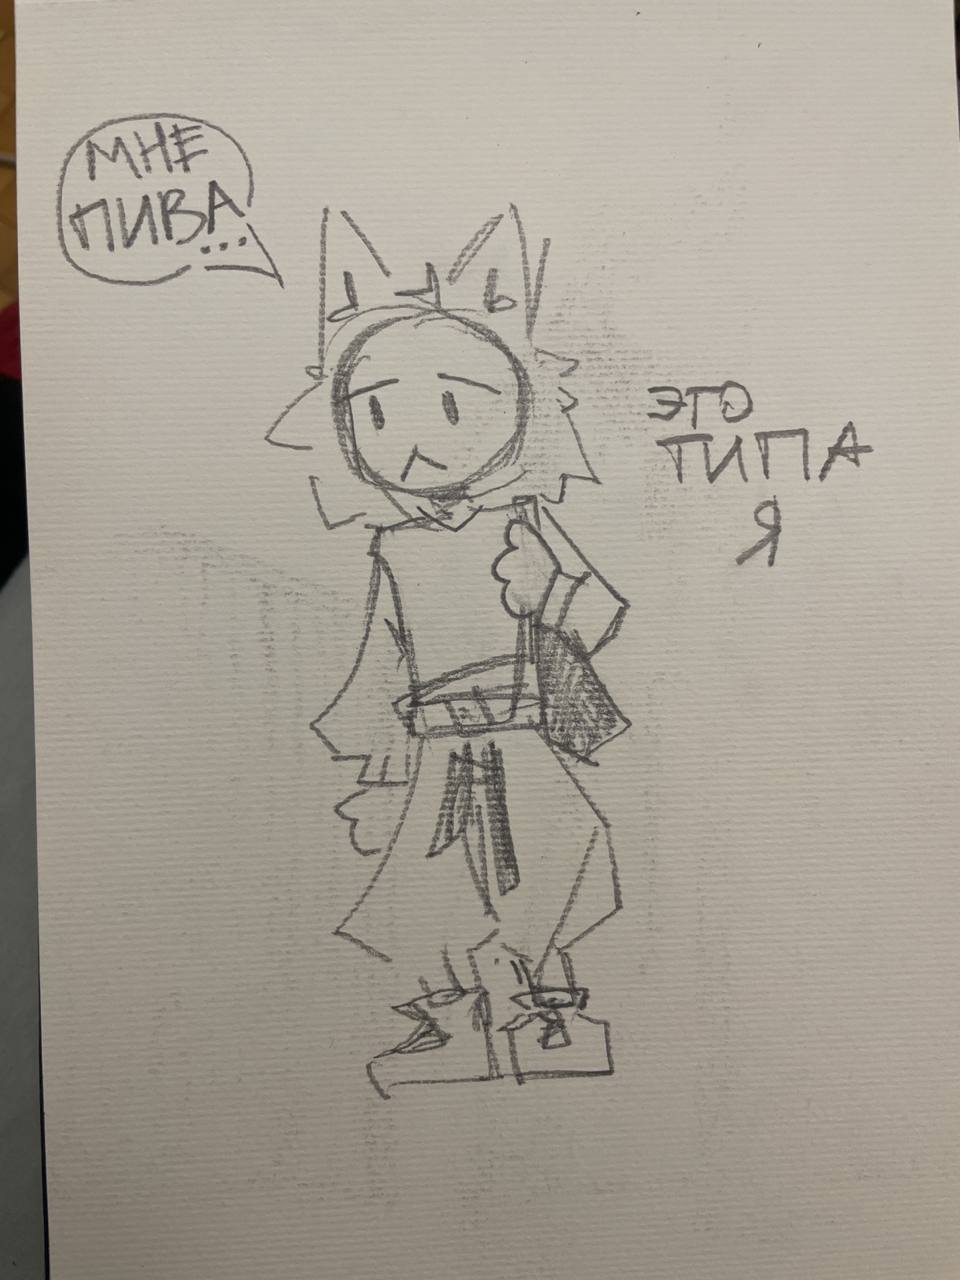 МНЕ
ПИВА...
ЭТО
ТИПА
Я